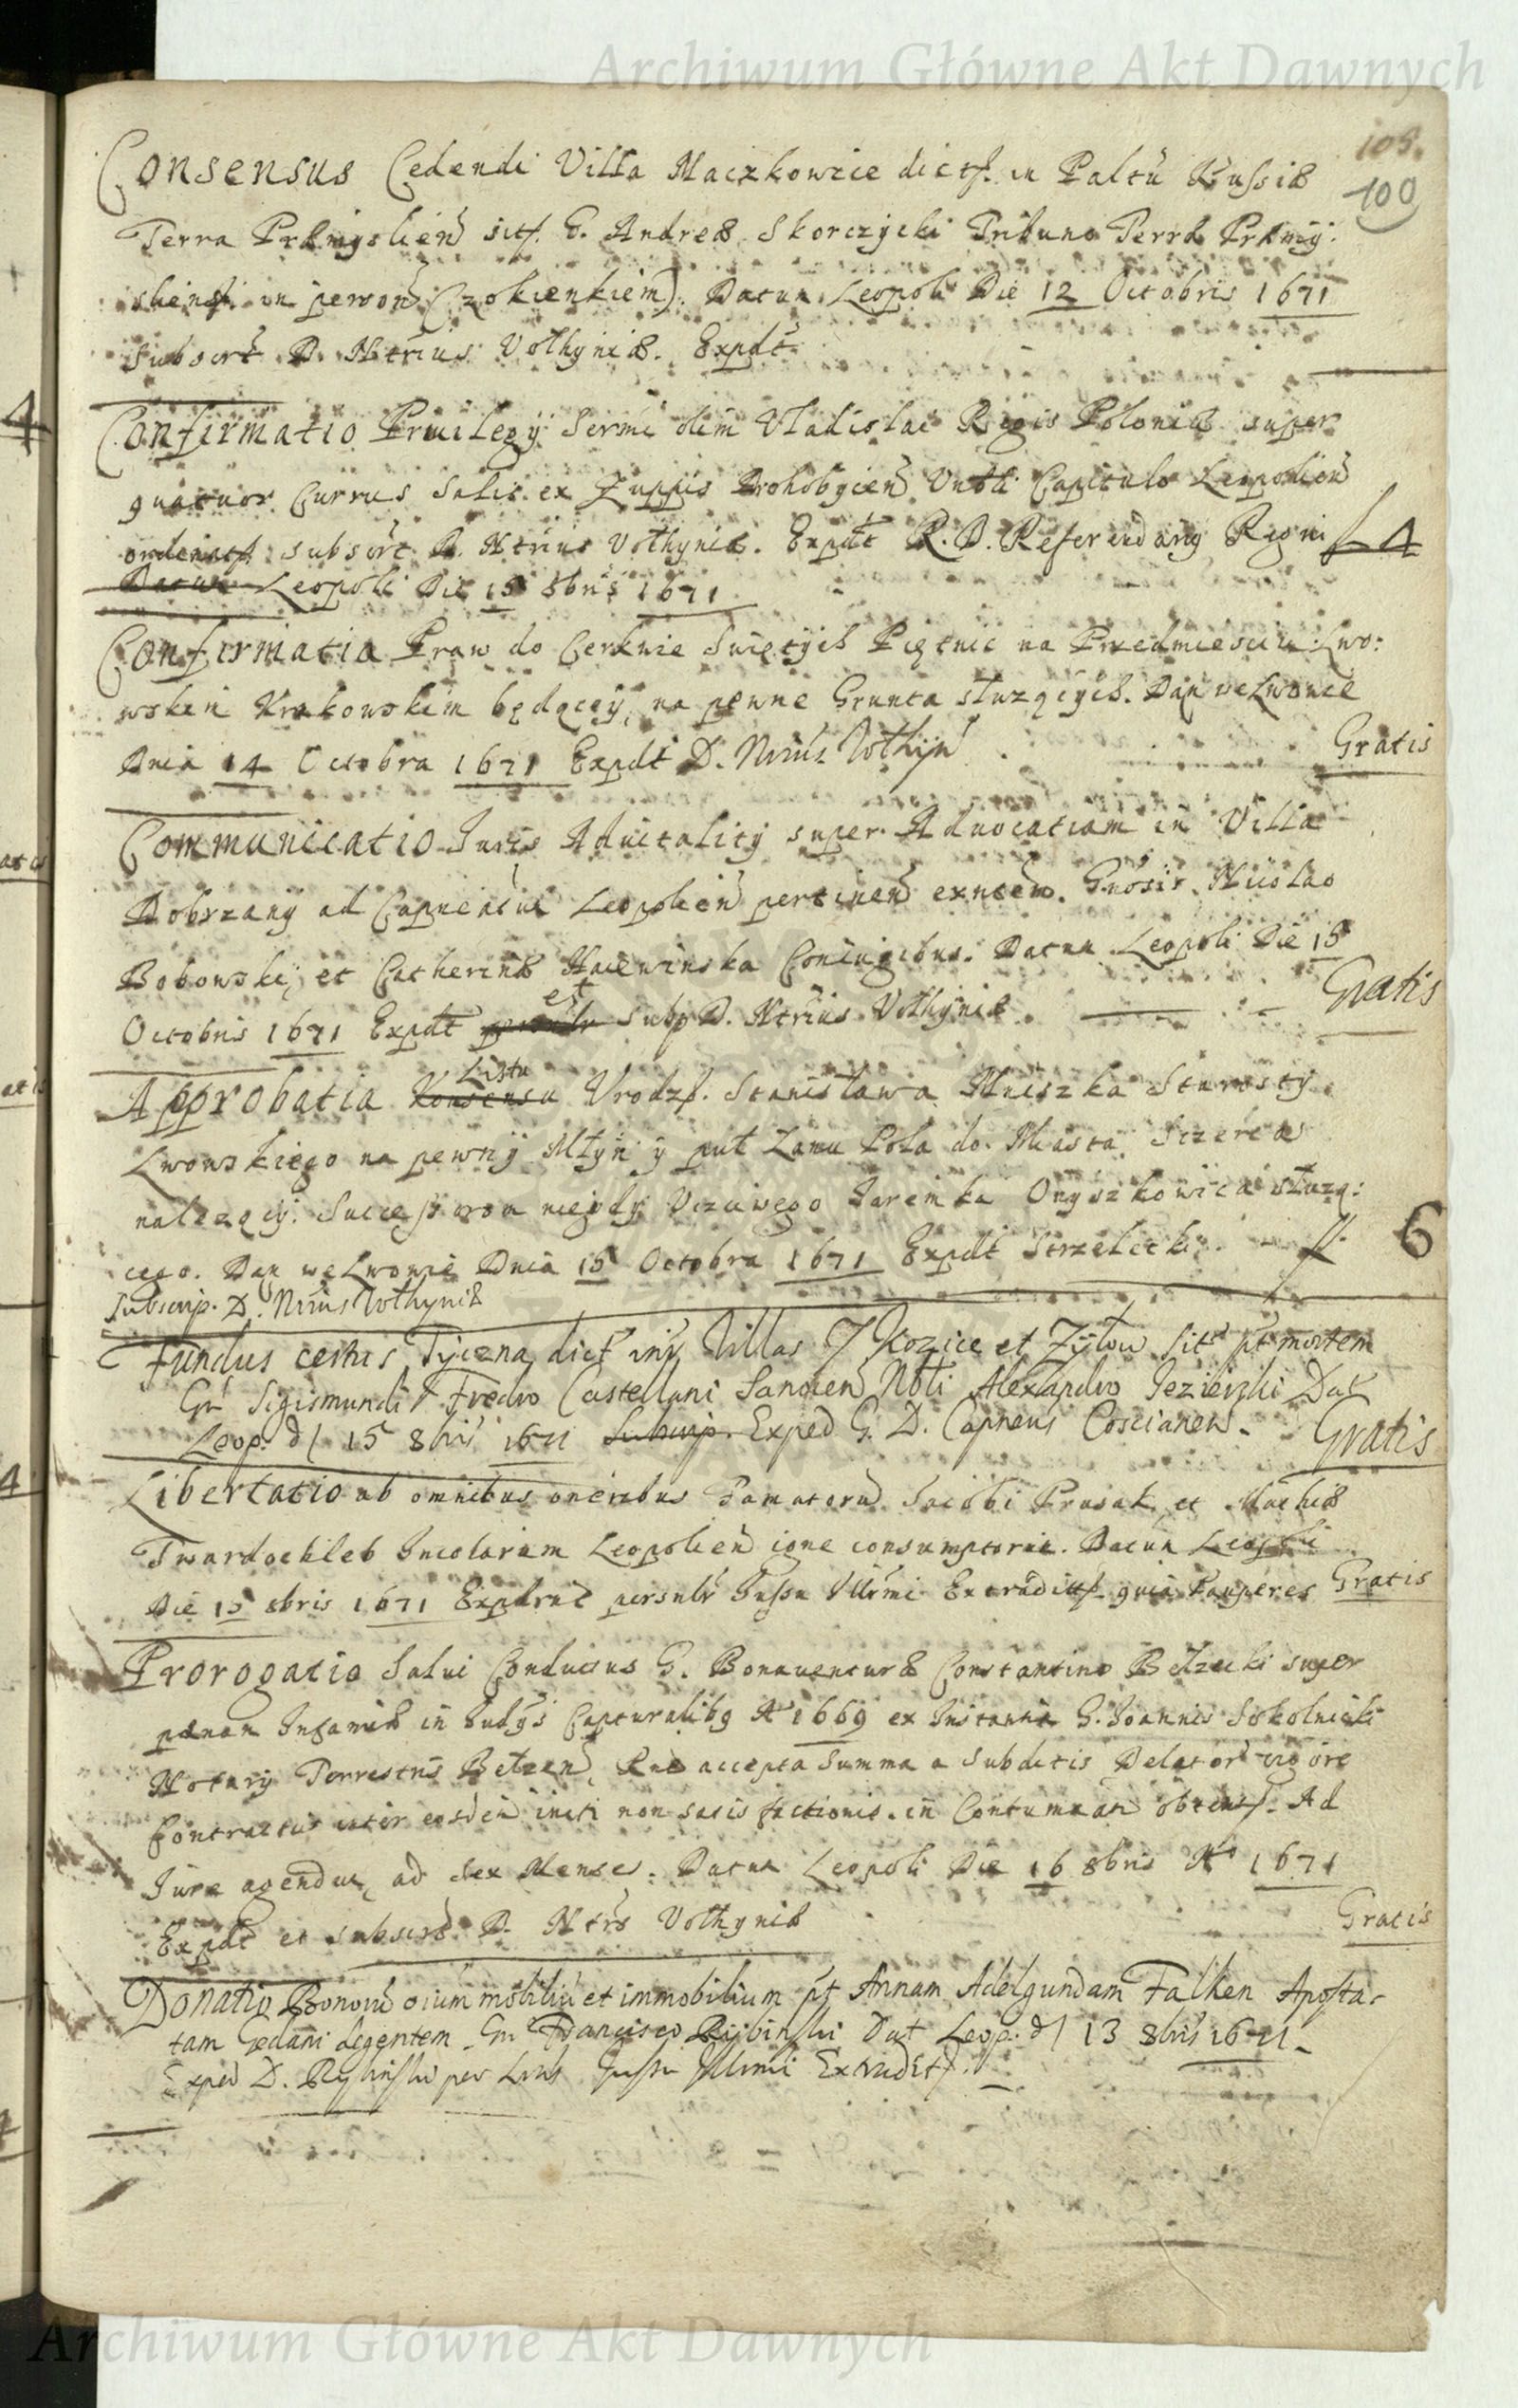 Archiwum Główne Akt Dawnych
108.
100
Consensus Cedendi Villa Maczkowice dict. in Paltu Russiæ
Terra Præmyslien sit. G. Andreæ Skorczycki Tribuno Terræ Præmy:
sliens. in person (z okienkiem). Datum Leopoli Die 12 Octobris 1671
Subscrt D. Ntrius Volhyniæ. Expdt
Confirmatio Priuilegy Sermi olim Vladislai Regis Poloniæ super
quatuor Currus Salis ex Zuppis Drohobycien Vnbli Capitulo Leopolien
ordinat. subscrt D. Ntrius Volhyniæ. Expdt R. D. Referendariy Regni f 4
Datum Leopoli Die 13 8bris 1671
Confirmatia Praw do Cerkwie Swiętych Piętnic na Przedmiesciu Lwo:
wskim Krakowskim będącey, na pewne Grunta słuzących. Dan we Lwowie
Dnia 14 Octobra 1671 Expdt D. Nrius Volhyn
Gratis
Communicatio Juris Aduitality super Aduocatiam in Villa
Dobrzany ad Capneatum Leopolien pertinen exntem. Gnosis Nicolao
Bobowski, et Catherinæ Coniugibus. Datum Leopoli Die 15
Octobris 1671 Expdt et Subp D. Ntrius Volhyniæ
Gratis
Approbatia Konsensu Listu Vrodz. Stanisława Mniszka Starosty
Lwowskiego na pewny Młyn y puł Łanu Pola do Miasta Sczerca
nalezący. Successorom niegdy Vczciwego Jaremka Onyszkowica słuzą:
cego. Dan we Lwowie Dnia 15 Octobra 1671 Expdt Strzelecki. f. 6
Subscrip. D. Nrius Volhyniæ
Fundus certus Tyczna dict intr Villas Kozice et Zyłow sit pt mortem
Gn Sigismundi Fredro Castellani Sanocen Nbli Alexandro Jezierski Dat
Leop. d 15 8bris 1671 Subscrip. Exped G. D. Capneus Coscianen.
Gratis
Libertatio ab omnibus oneribus Famatoru Jacobi Prusak et Mathiæ
Twardochleb Incolarum Leopolien igne consumptorum. Datum Leopoli
Die 15 8bris 1671 Jussu Illrmi quia Pauperes
Gratis
Prorogatio Salui Conductus G. Bonauenturæ Constantino Bełzecki super
pænam Infamiæ in Iudys Capturalibq Ao 1669 ex Instantia G. Joannis Sokolnicki
Notary Terrestris Bełzen, accepta Summa a Subditis Delator vigore
Contractus inter eosdem initi non satis factionis in Contumaciam obtent. Ad
Jure agendum, ad sex Menses. Datum Leopoli Die 16 8bris Ao 1671
Expdt et subscrt D. Ntrs Volhyniæ
Gratis
Donatio Bonoru oium mobiliu et immobilium pt Annam Adelgundam Falken Aposta-
tam Gedani degentem Gn Francisco Rybinski Dat Leop. d 13 8bris 1671
Exped D. Rybinski per Jussu Illrmi Extradit.
Archiwum Główne Akt Dawnych